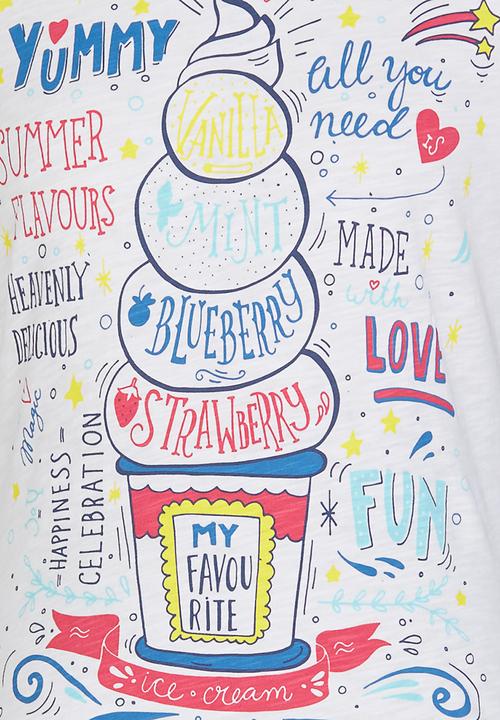 YUMMY
All you
need
is
SUMMER
FLAVOURS
VANILLA
MINT
MADE
with
LOVE
HEAVENLY
DELICIOUS
BLUEBERRY
STRAWBERRY
Magic
= HAPPINESS =
CELEBRATION
FUN
MY
FAVOU
RiTE
ice · cream